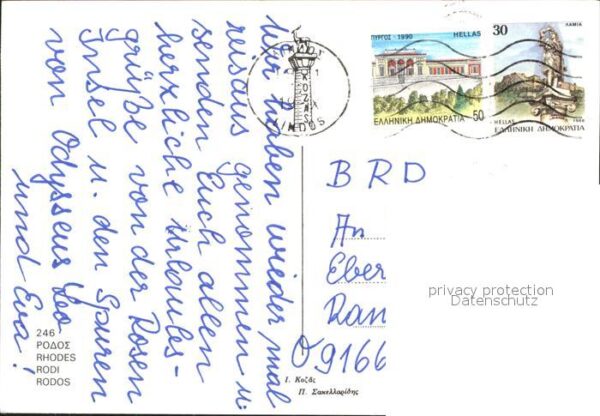 Wir haben wieder mal
reisaus genommen u.
senden Euch allen
herzliche Urlaubs-
grüße von der Rosen
Insel u. den Spuren
von Odysseus Leo
und Eva!
246
ΡΟΔΟΣ
RHODES
RODI
RODOS
ΠΥΡΓΟΣ - 1990
HELLAS
ΕΛΛΗΝΙΚΗ ΔΗΜΟΚΡΑΤΙΑ
50
30
ΛΑΜΙΑ
HELLAS
1988
ΕΛΛΗΝΙΚΗ ΔΗΜΟΚΡΑΤΙΑ
BRD
An
Eber
Ran
09166
privacy protection
Datenschutz
Ι. Κοζάς
Π. Σακελλαρίδης